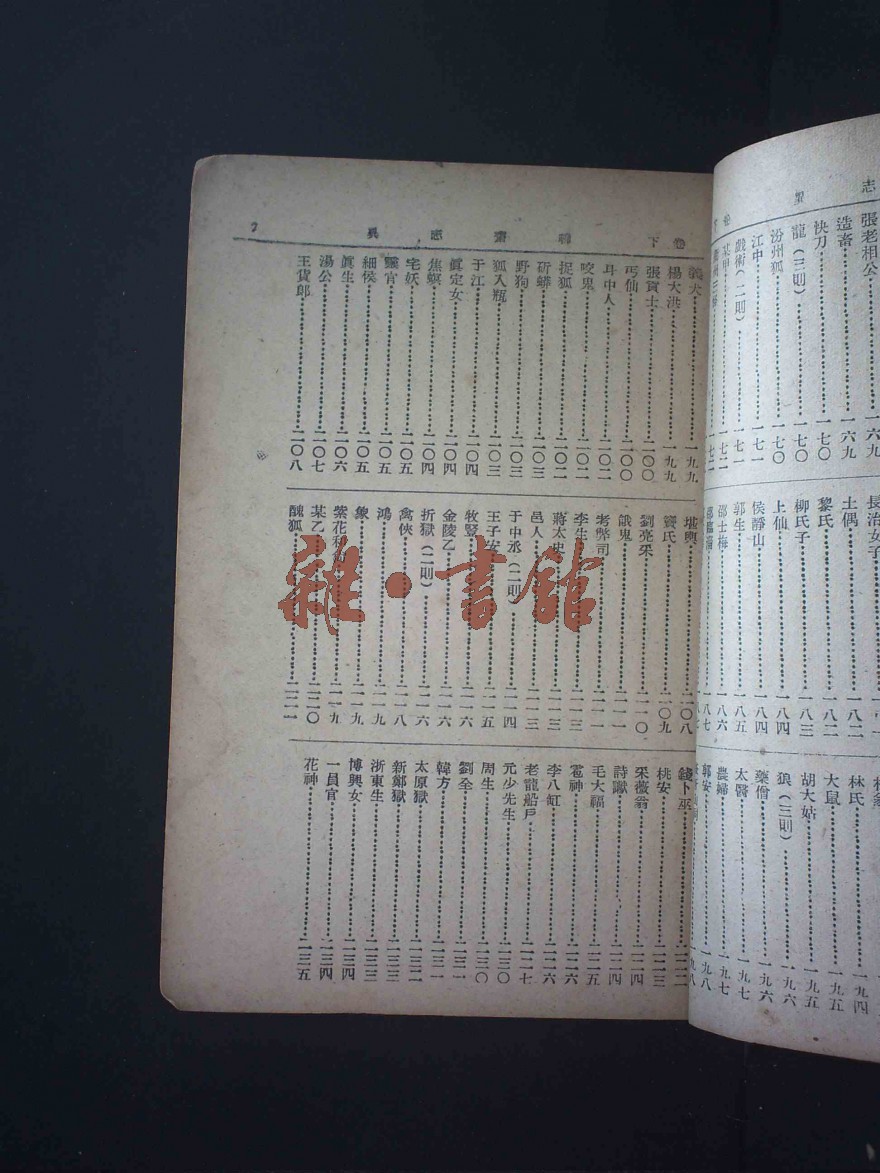 志異卷
張老相公⋯⋯一六九
造畜⋯⋯一六九
快刀⋯⋯一七〇
龍(三則)⋯⋯一七〇
汾州狐⋯⋯一七一
江中⋯⋯一七一
戲術(二則)⋯⋯一七一
某甲⋯⋯一七二
長治女子
土偶⋯⋯一八二
黎氏⋯⋯一八二
柳氏子⋯⋯一八四
上仙⋯⋯一八四
侯靜山⋯⋯一八四
郭生⋯⋯一八五
邵士梅⋯⋯一八六
邵臨淄⋯⋯一八七
林氏⋯⋯一九四
大鼠⋯⋯一九五
胡大姑⋯⋯一九五
狼(三則)⋯⋯一九六
藥僧⋯⋯一九六
太醫⋯⋯一九七
農婦⋯⋯一九七
郭安⋯⋯一九八
卷下 聊齋志異 7
義犬⋯⋯一九九
楊大洪⋯⋯一九九
張貢士⋯⋯二〇〇
丐仙⋯⋯二〇〇
耳中人⋯⋯二〇二
咬鬼⋯⋯二〇二
捉狐⋯⋯二〇二
斫蟒⋯⋯二〇三
野狗⋯⋯二〇三
狐入瓶⋯⋯二〇三
于江⋯⋯二〇四
眞定女⋯⋯二〇四
焦螟⋯⋯二〇四
宅妖⋯⋯二〇五
靈官⋯⋯二〇五
細侯⋯⋯二〇五
眞生⋯⋯二〇六
湯公⋯⋯二〇七
王貨郎⋯⋯二〇八
堪輿⋯⋯二〇八
竇氏⋯⋯二〇九
劉亮采⋯⋯二一〇
餓鬼⋯⋯二一一
考弊司⋯⋯二一一
李生⋯⋯二一三
蔣太史⋯⋯二一三
邑人⋯⋯二一三
于中丞(二則)⋯⋯二一四
王子安⋯⋯二一五
牧豎⋯⋯二一六
金陵乙⋯⋯二一六
折獄(二則)⋯⋯二一六
禽俠⋯⋯二一八
鴻⋯⋯二一九
象⋯⋯二一九
紫花和尚⋯⋯二一九
某乙⋯⋯二二〇
醜狐⋯⋯二二一
錢卜巫⋯⋯二二二
桃安⋯⋯二二三
采薇翁⋯⋯二二四
詩讞⋯⋯二二四
毛大福⋯⋯二二五
雹神⋯⋯二二六
李八缸⋯⋯二二六
老龍船戶⋯⋯二二七
元少先生⋯⋯二三〇
周生⋯⋯二三〇
劉全⋯⋯二三一
韓方⋯⋯二三一
太原獄⋯⋯二三二
新鄭獄⋯⋯二三二
浙東生⋯⋯二三三
博興女⋯⋯二三四
一員官⋯⋯二三四
花神⋯⋯二三五
雜·書館